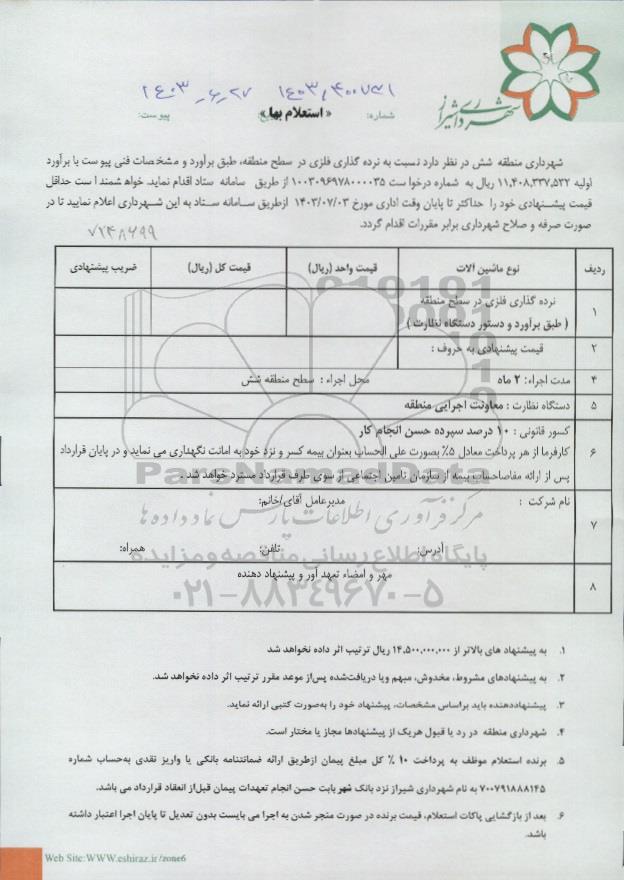 شهرداری شیراز
۱۴۰۳/۴۰۰۷۳۱ ۱۴۰۳-۶-۲۷
شماره: « استعلام بها » پیوست:
شهرداری منطقه شش در نظر دارد نسبت به نرده گذاری فلزی در سطح منطقه، طبق برآورد و مشخصات فنی پیوست با برآورد
اولیه ۱۱,۴۰۸,۳۳۷,۵۳۲ ریال به شماره درخواست ۱۰۰۳۰۹۶۹۷۸۰۰۰۰۳۵ از طریق سامانه ستاد اقدام نماید. خواهشمند است حداقل
قیمت پیشنهادی خود را حداکثر تا پایان وقت اداری مورخ ۱۴۰۳/۰۷/۰۳ ازطریق سامانه ستاد به این شهرداری اعلام نمایید تا در
صورت صرفه و صلاح شهرداری برابر مقررات اقدام گردد.
۷۲۴۸۶۹۹
ردیف نوع ماشین آلات قیمت واحد (ریال) قیمت کل (ریال) ضریب پیشنهادی
۱ نرده گذاری فلزی در سطح منطقه
( طبق برآورد و دستور دستگاه نظارت )
۲ قیمت پیشنهادی به حروف :
۴ مدت اجراء: ۲ ماه محل اجراء : سطح منطقه شش
۵ دستگاه نظارت : معاونت اجرایی منطقه
کسور قانونی : ۱۰ درصد سپرده حسن انجام کار
۶ کارفرما از هر پرداخت معادل ۵٪ بصورت علی الحساب بعنوان بیمه کسر و نزد خود به امانت نگهداری می نماید و در پایان قرارداد
پس از ارائه مفاصاحساب بیمه از سازمان تامین اجتماعی از سوی طرف قرارداد مسترد خواهد شد .
ParsNamadData
نام شرکت : مدیرعامل آقای/خانم:
مرکز فرآوری اطلاعات پارس نماد داده ها
۷
آدرس: تلفن: همراه:
پایگاه اطلاع رسانی مناقصه و مزایده
۸ مهر و امضاء تعهد آور و پیشنهاد دهنده
۰۲۱-۸۸۳۴۹۶۷۰-۵
۱. به پیشنهاد های بالاتر از ۱۴,۵۰۰,۰۰۰,۰۰۰ ریال ترتیب اثر داده نخواهد شد
۲. به پیشنهادهای مشروط، مخدوش، مبهم ویا دریافت‌شده پس‌از موعد مقرر ترتیب اثر داده نخواهد شد.
۳. پیشنهاددهنده باید براساس مشخصات، پیشنهاد خود را به‌صورت کتبی ارائه نماید.
۴. شهرداری منطقه در رد یا قبول هریک از پیشنهادها مجاز یا مختار است.
۵. برنده استعلام موظف به پرداخت ۱۰ ٪ کل مبلغ پیمان ازطریق ارائه ضمانتنامه بانکی یا واریز نقدی به‌حساب شماره
۷۰۰۷۹۱۸۸۸۱۴۵ به نام شهرداری شیراز نزد بانک شهر بابت حسن انجام تعهدات پیمان قبل‌از انعقاد قرارداد می باشد.
۶. بعد از بازگشایی پاکات استعلام، قیمت برنده در صورت منجر شدن به اجرا می بایست بدون تعدیل تا پایان اجرا اعتبار داشته
باشد.
Web Site:WWW.eshiraz.ir/zone6